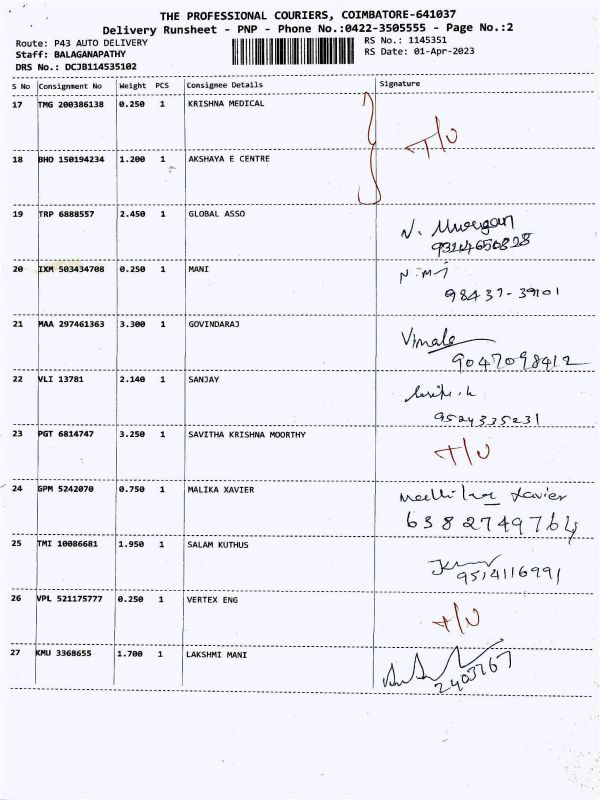 THE PROFESSIONAL COURIERS, COIMBATORE-641037
Delivery Runsheet - PNP - Phone No.:0422-3505555 - Page No.:2
Route: P43 AUTO DELIVERY RS No.: 1145351
Staff: BALAGANAPATHY RS Date: 01-Apr-2023
DRS No.: DCJB114535102
S No Consignment No Weight PCS Consignee Details Signature
17 TMG 200386138 0.250 1 KRISHNA MEDICAL T/U
18 BHO 150194234 1.200 1 AKSHAYA E CENTRE
19 TRP 6888557 2.450 1 GLOBAL ASSO N. Murugan
20 IXM 503434708 0.250 1 MANI
98437-39101
21 MAA 297461363 3.300 1 GOVINDARAJ Vimala
9047098412
22 VLI 13781 2.140 1 SANJAY
9524335231
23 PGT 6814747 3.250 1 SAVITHA KRISHNA MOORTHY T/U
24 GPM 5242070 0.750 1 MALIKA XAVIER Xavier
6382749764
25 TMI 10086681 1.950 1 SALAM KUTHUS
9514116991
26 VPL 521175777 0.250 1 VERTEX ENG T/U
27 KMU 3368655 1.700 1 LAKSHMI MANI
2403767